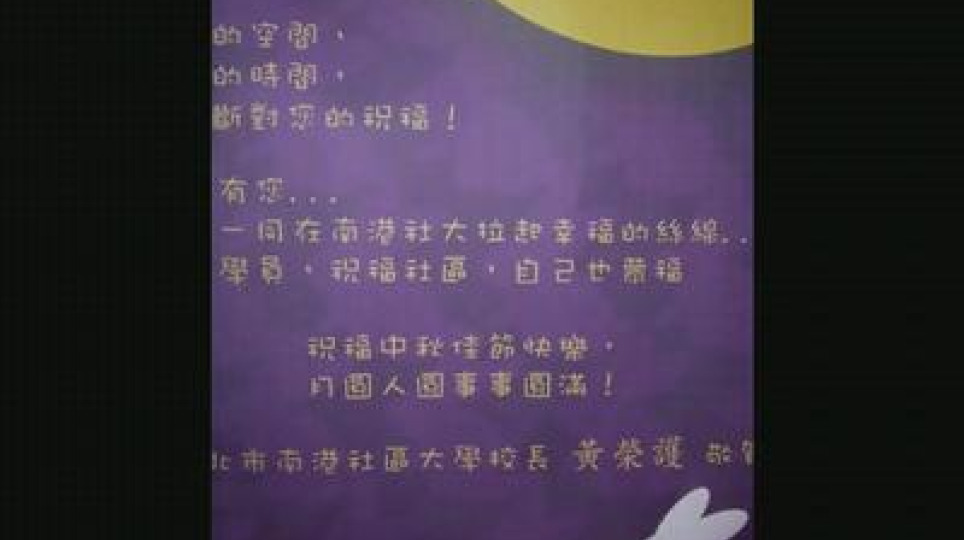 的空間，
的時間，
斷對您的祝福！
有您...
一同在南港社大拉起幸福的絲線..
學員，祝福社區，自己也蒙福
祝福中秋佳節快樂，
月圓人圓事事圓滿！
北市南港社區大學校長 黃榮護 敬